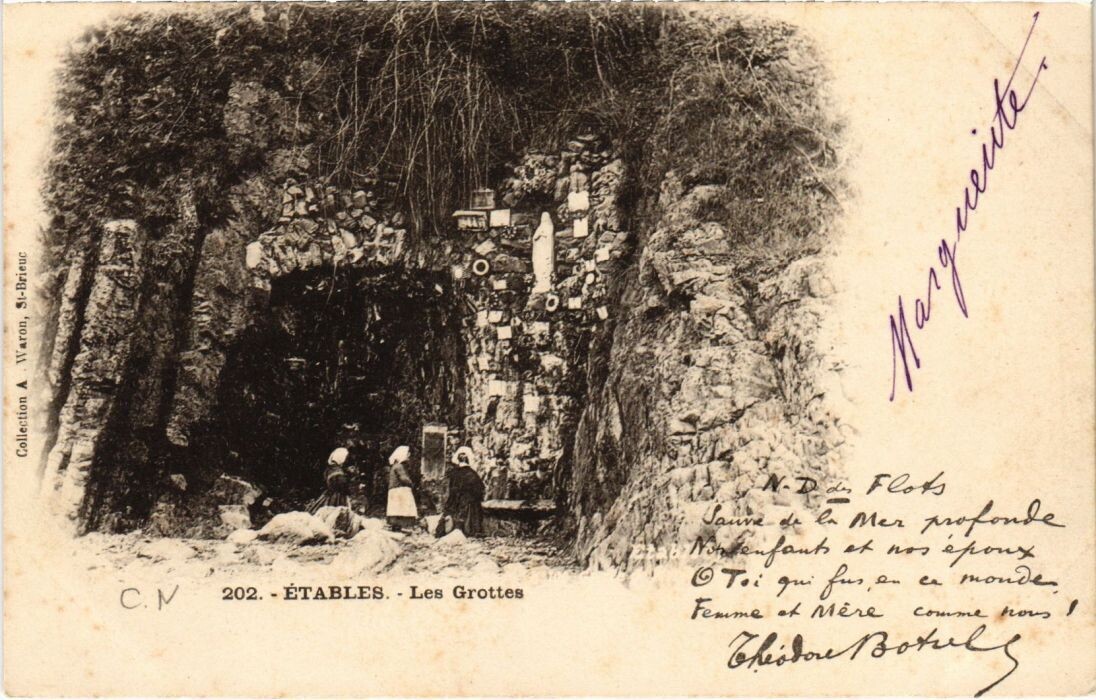 Collection A. Waron, St-Brieuc
Marguerite.
N-D des Flots
Sauve de la Mer profonde
Nos enfants et nos époux
O Toi qui fus en ce monde
Femme et Mère comme nous !
Théodore Botrel
C.N
202. - ÉTABLES. - Les Grottes